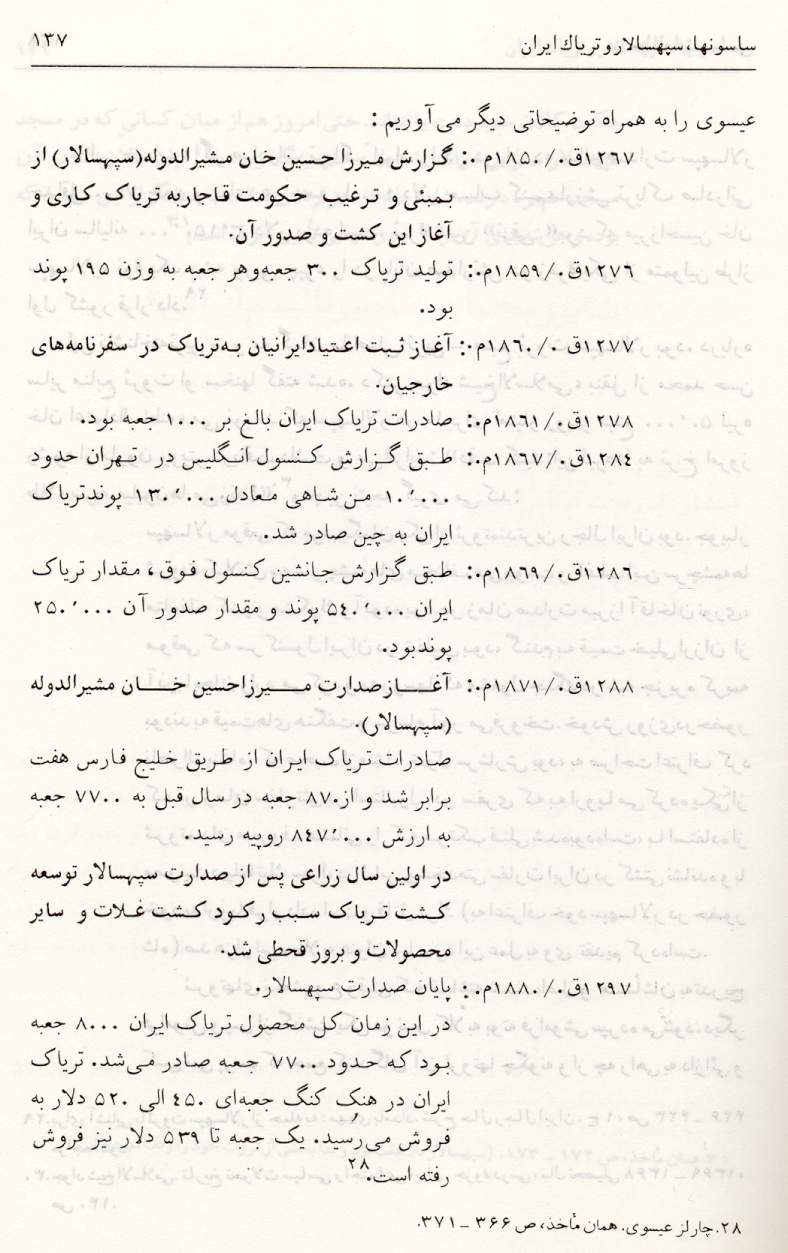 ساسونها، سپهسالار و تریاك ایران ۱۳۷
عیسوی را به همراه توضیحاتی دیگر می‌آوریم:
۱۲۶۷ق./۱۸۵۰م.: گزارش میرزا حسین خان مشیرالدوله(سپهسالار) از
بمبئی و ترغیب حکومت قاجار به تریاک کاری و
آغاز این کشت و صدور آن.
۱۲۷۶ق./۱۸۵۹م.: تولید تریاک ۳۰۰ جعبه‌وهر جعبه به وزن ۱۹۵ پوند
بود.
۱۲۷۷ق./۱۸۶۰م.: آغاز ثبت اعتیادایرانیان به‌تریاک در سفرنامه‌های
خارجیان.
۱۲۷۸ق./۱۸۶۱م.: صادرات تریاک ایران بالغ بر ۱۰۰۰ جعبه بود.
۱۲۸٤ق./۱۸۶۷م.: طبق گزارش کنسول انگلیس در تهران حدود
۱۰٬۰۰۰ من شاهی معادل ۱۳۰٬۰۰۰ پوندتریاک
ایران به چین صادر شد.
۱۲۸۶ق./۱۸۶۹م.: طبق گزارش جانشین کنسول فوق، مقدار تریاک
ایران ۵٤۰٬۰۰۰ پوند و مقدار صدور آن ۲۵۰٬۰۰۰
پوندبود.
۱۲۸۸ق./۱۸۷۱م.: آغازصدارت میرزاحسین خان مشیرالدوله
(سپهسالار).
صادرات تریاک ایران از طریق خلیج فارس هفت
برابر شد و از ۸۷۰ جعبه در سال قبل به ۷۷۰۰ جعبه
به ارزش ۸٤۷٬۰۰۰ روپیه رسید.
در اولین سال زراعی پس از صدارت سپهسالار توسعه
کشت تریاک سبب رکود کشت غلات و سایر
محصولات و بروز قحطی شد.
۱۲۹۷ق./۱۸۸۰م.: پایان صدارت سپهسالار.
در این زمان کل محصول تریاک ایران ۸۰۰۰ جعبه
بود که حدود ۷۷۰۰ جعبه صادر می‌شد. تریاک
ایران در هنک کنگ جعبه‌ای ٤۵۰ الی ۵۲۰ دلار به
فروش می‌رسید. یک جعبه تا ۵۳۹ دلار نیز فروش
رفته است.۲۸
۲۸. چارلز عیسوی. همان مأخذ، ص ۳۶۶ ـ ۳۷۱.